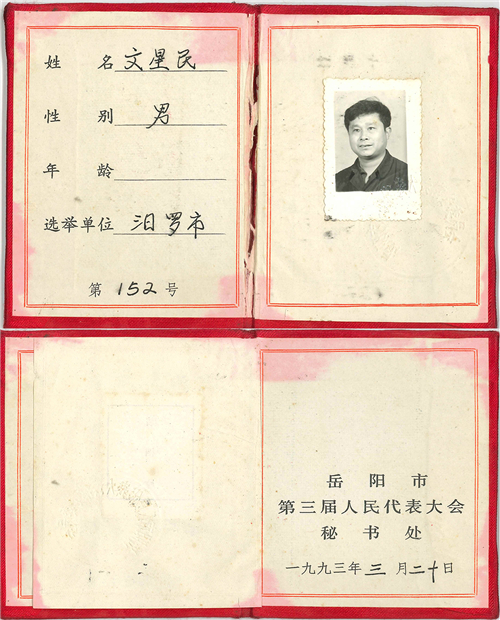 姓 名 文星民
性 别 男
年 龄
选举单位 汨罗市
第 152 号
岳 阳 市
第三届人民代表大会
秘 书 处
一九九三年 三 月 二十日